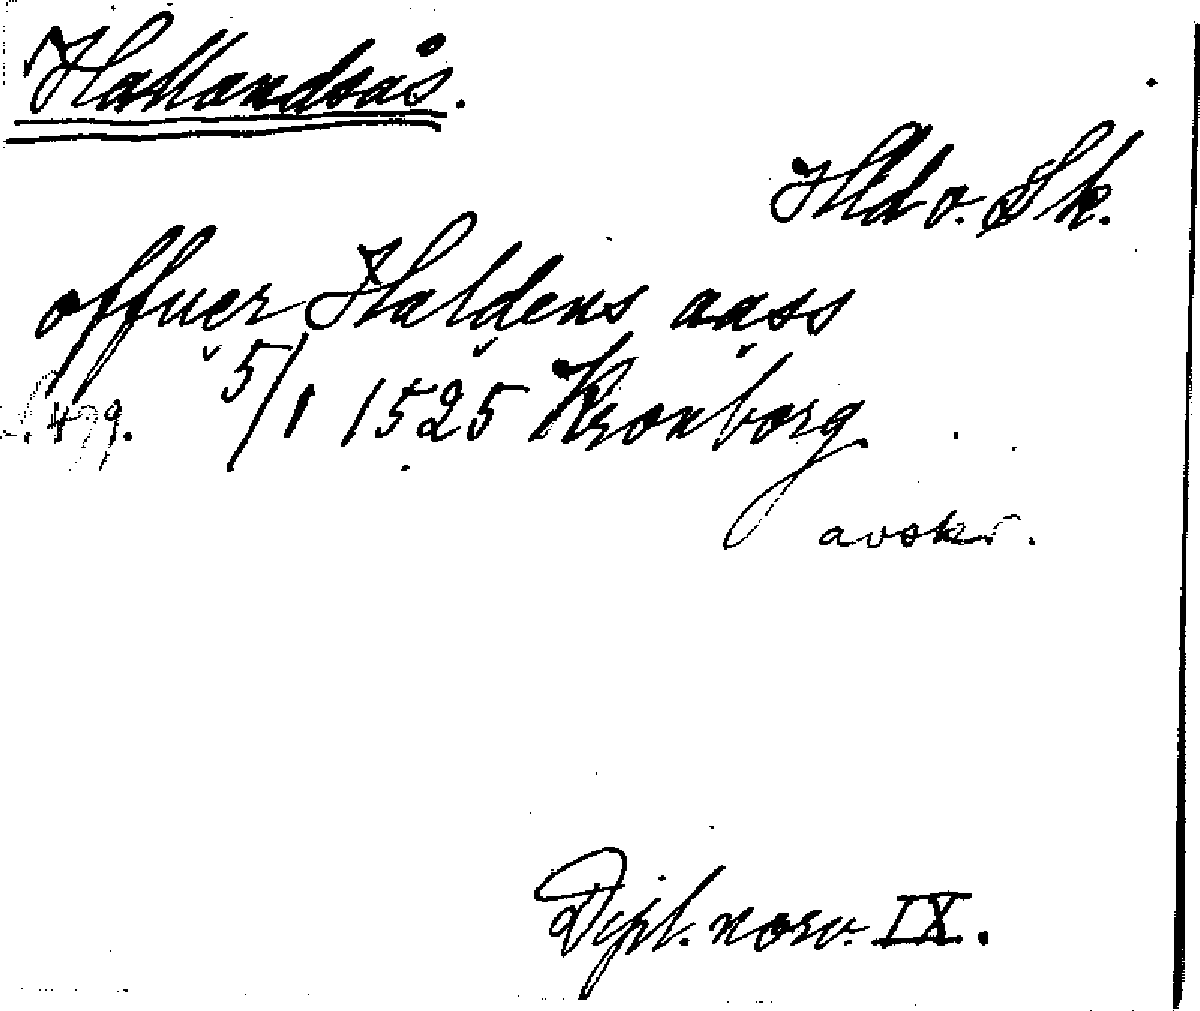 Hallandsås.
Hld o. Sk.
offuer Haldens aass
5/1 1525 Kronborg
s. 479.
avskr.
Dipl. norv. IX.